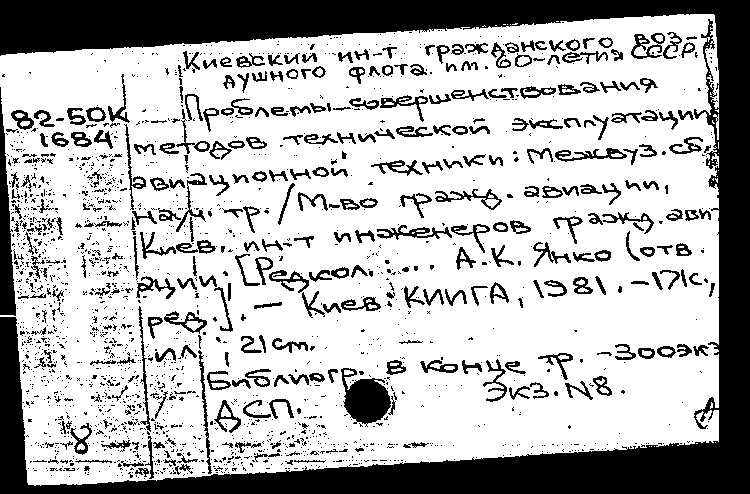 Киевский ин-т гражданского воз-
душного флота им. 60-летия СССР.
82-50К
1684
Проблемы совершенствования
методов технической эксплуатации
авиационной техники: Межвуз. сб.
науч. тр. / М-во гражд. авиации,
Киев. ин-т инженеров гражд. ави-
ации; [Редкол.: ... А.К. Янко (отв.
ред.)]. — Киев: КИИГА, 1981. - 171с.,
ил.; 21 см.
Библиогр. в конце тр. - 300 экз
Экз. N8.
ДСП.
8